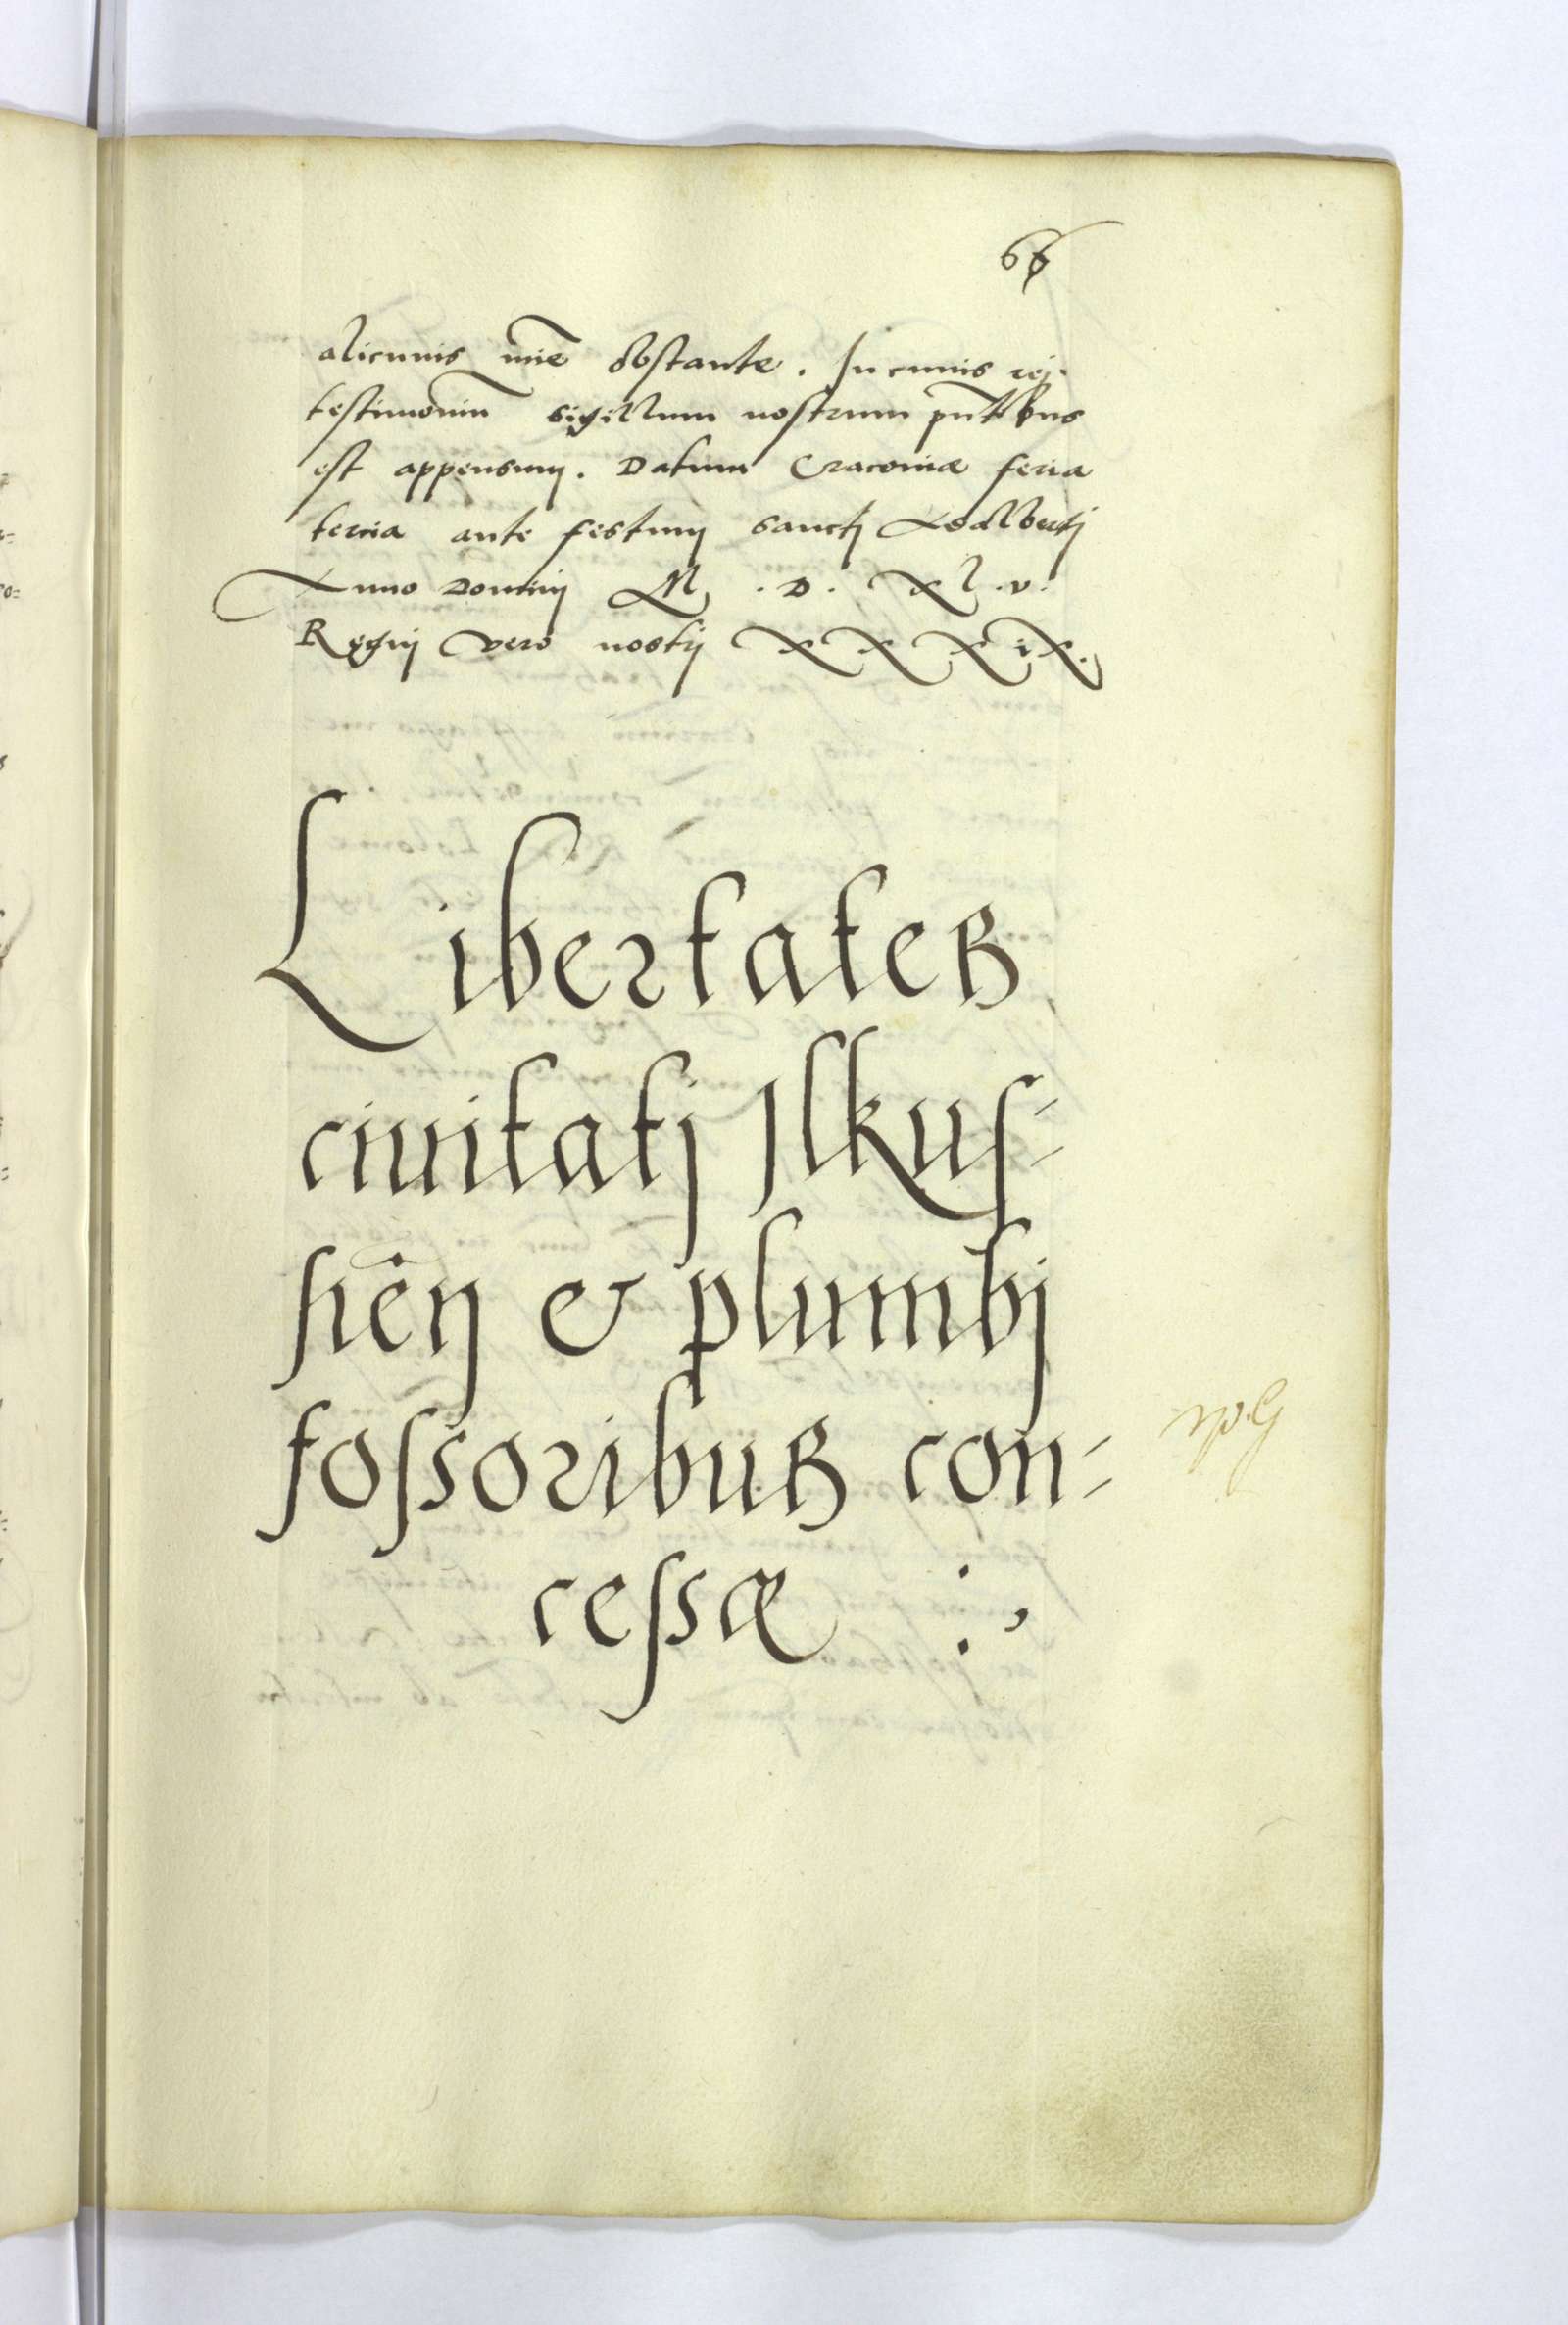 66
alicuius mie obstante. In cuius rei
testimoniu sigillum nostrum pntibus
est appensum. Datum Cracoviæ feria
tercia ante festum sancti Adalberti
Anno Domini M . D . XL . v .
Regni vero nostri XXXIX.
Libertates
ciuitati Ilkus-
sien & plumbi
fossoribus con-
cessæ